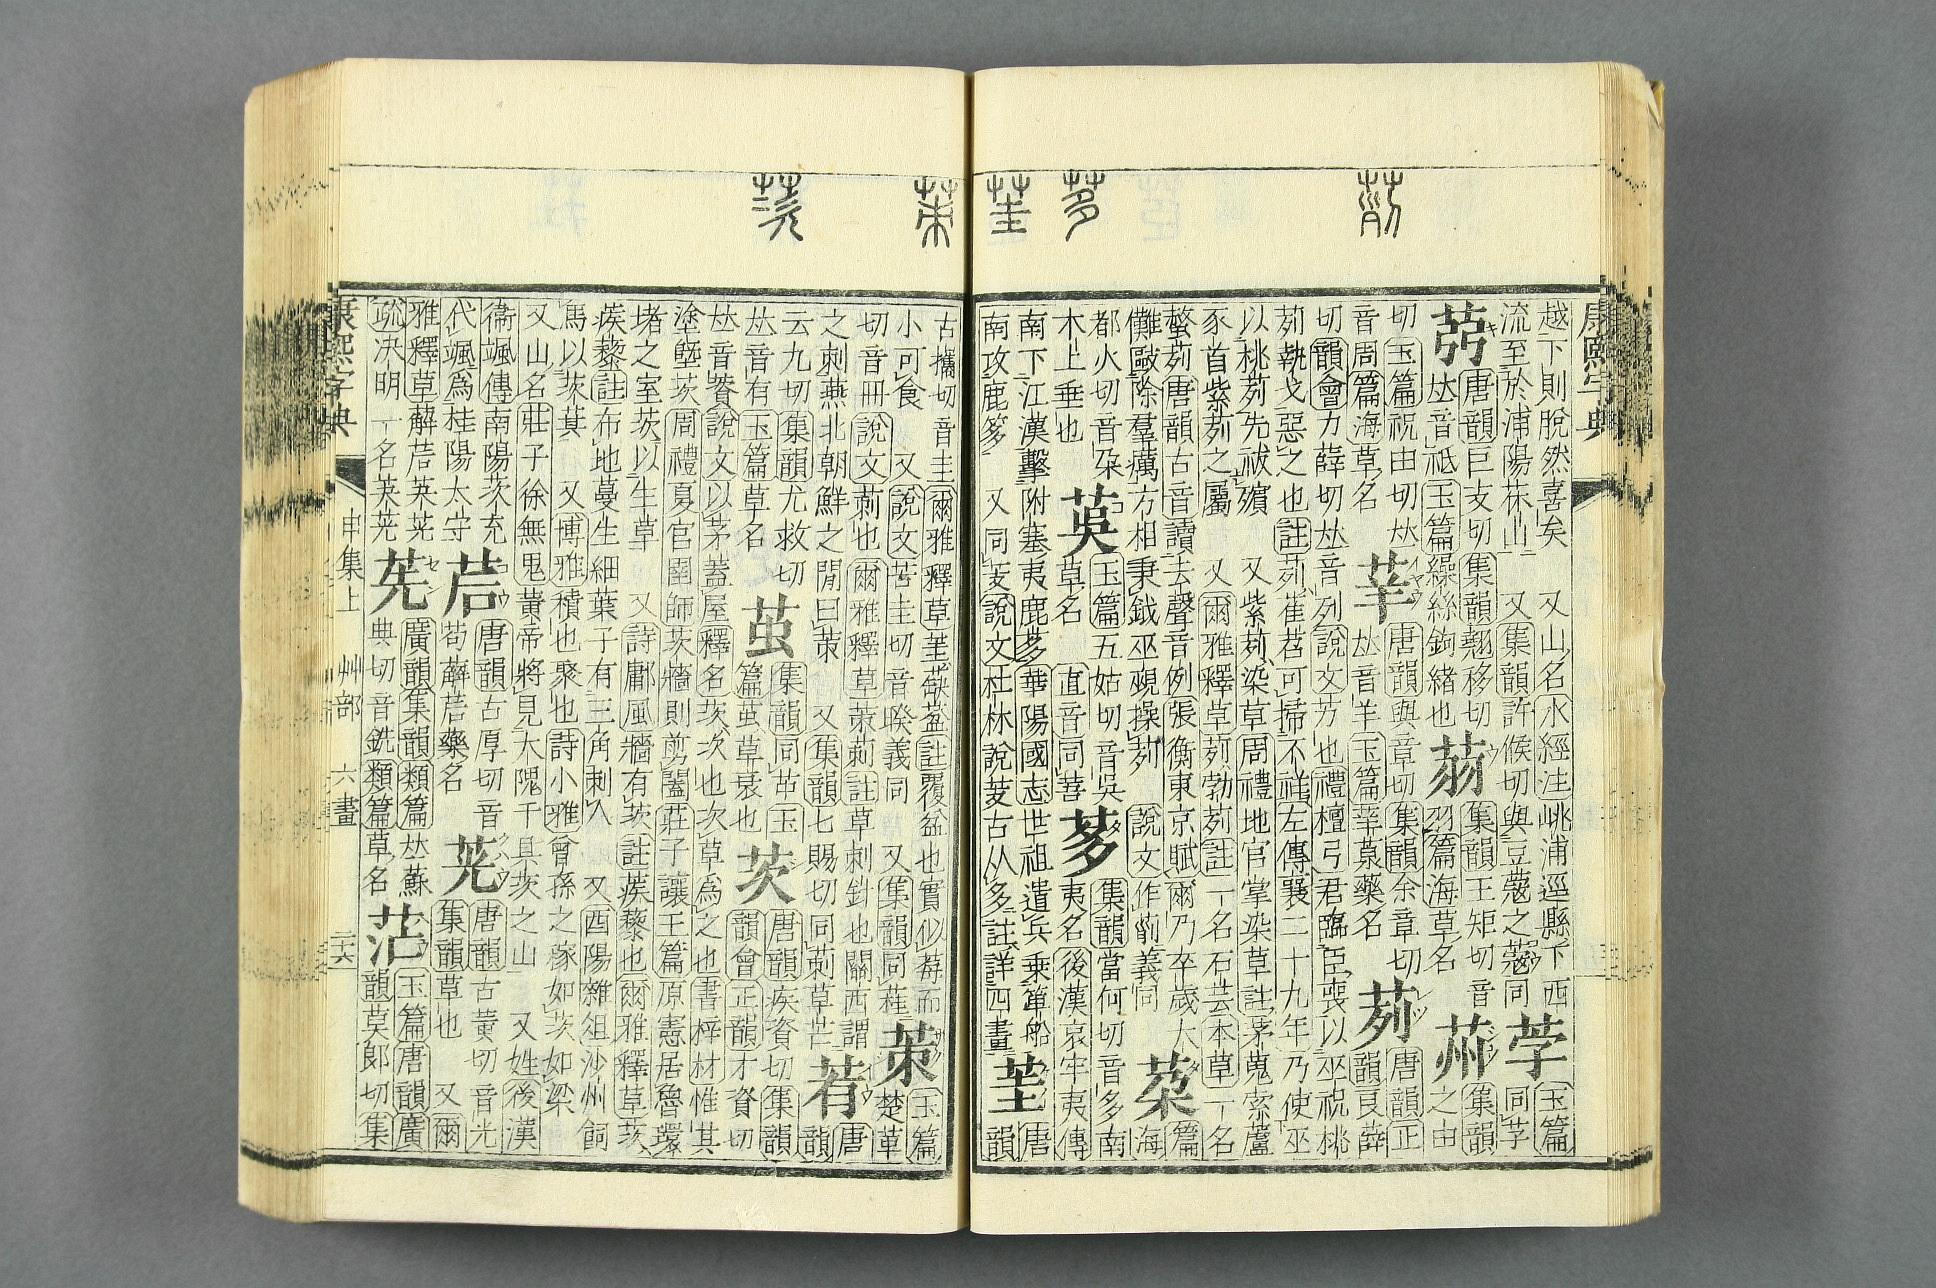 康熙字典
越下則脫然喜矣 又山名水經注姚浦逕縣下西
流至於浦陽茱山 又集韻許候切與豆蔲之蔲同
荢
玉篇
同芓
唐韻巨支切集韻翹移切
𠀤音祇玉篇繰絲鉤緒也
集韻王矩切音
羽篇海草名
集韻
之由
切玉篇祝由切𠀤
音周篇海草名
莘
唐韻與章切集韻余章切
𠀤音羊玉篇莘蒤藥名
茢
唐韻正
韻良薛
切韻會力薛切𠀤音列說文芳也禮檀弓君臨臣喪以巫祝桃
茢執戈惡之也註茢萑苕可掃不祥左傳襄二十九年乃使巫
以桃茢先祓殯 又紫茢染草周禮地官掌染草註茅蒐橐蘆
豕首紫茢之屬 又爾雅釋草茢勃茢註一名石芸本草一名
螫茢唐韻古音讀去聲音例張衡東京賦爾乃卒歲大
儺毆除羣癘方相秉鉞巫覡操茢 說文作𦯔義同
篇
海
都火切音朶
木上垂也
茣
玉篇五姑切音吳
草名 直音同善
茤
集韻當何切音多南
夷名後漢哀牢夷傳
南下江漢擊附塞夷鹿茤華陽國志世祖遣兵乘箄船
南攻鹿茤 又同芰說文杜林說芰古从多註詳四畫
茥
唐
韻
古攜切音圭爾雅釋草茥蒛葐註覆盆也實似莓而
小可食 又說文苦圭切音睽義同 又集韻同蓕
茦
玉篇
楚革
切音冊說文莿也爾雅釋草茦莿註草刺針也關西謂
之刺燕北朝鮮之閒曰茦 又集韻七賜切同莿草芒
唐
韻
云九切集韻尤救切
𠀤音有玉篇草名
茧
集韻同茧玉
篇茧草衰也
茨
唐韻疾資切集韻
韻會正韻才資切
𠀤音薋說文以茅蓋屋釋名茨次也次草爲之也書梓材惟其
塗塈茨周禮夏官圉師茨牆則剪闔莊子讓王篇原憲居魯環
堵之室茨以生草 又詩鄘風牆有茨註蒺藜也爾雅釋草茨
蒺藜註布地蔓生細葉子有三角刺人 又酉陽雜俎沙州飼
馬以茨萁 又博雅積也聚也詩小雅曾孫之稼如茨如梁
又山名莊子徐無鬼黃帝將見大隗于具茨之山 又姓後漢
衞颯傳南陽茨充
代颯爲桂陽太守
茩
唐韻古厚切音
苟薢茩藥名
茪
唐韻古黃切音光
集韻草也 又爾
雅釋草薢茩英茪
疏決明一名英茪
廣韻集韻類篇𠀤蘇
典切音銑類篇草名
茫
玉篇唐韻廣
韻莫郞切集
康熙字典
申集上
艸部
六畫
二六